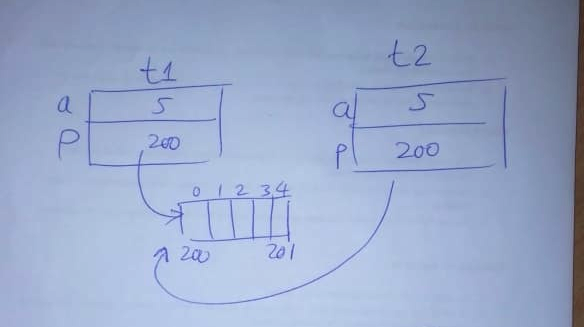 t1
t2
a 5
P 200
a 5
P 200
0 1 2 3 4
200 201